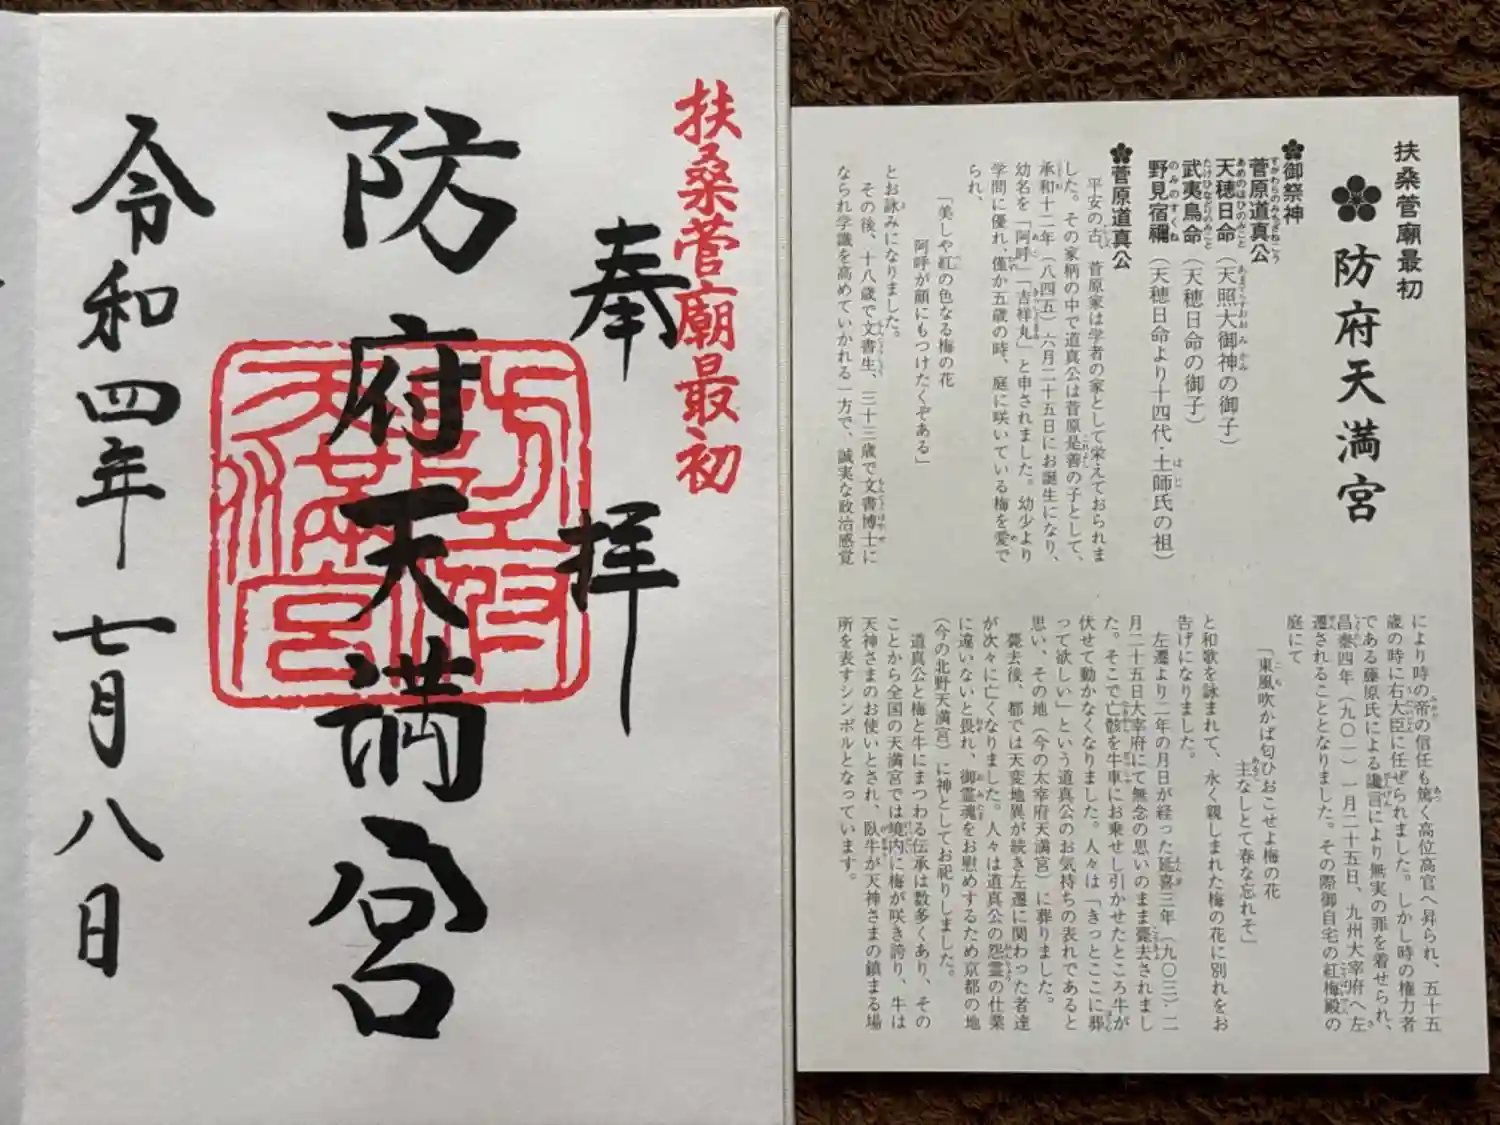 扶桑菅廟最初
奉拝
防府天満宮
防府天満宮
令和四年七月八日
扶桑菅廟最初
防府天満宮
御祭神
菅原道真公
天穂日命（天照大御神の御子）
武夷鳥命（天穂日命の御子）
野見宿禰（天穂日命より十四代・土師氏の祖）
菅原道真公
平安の古、菅原家は学者の家として栄えておられま
した。その家柄の中で道真公は菅原是善の子として、
承和十二年（八四五）六月二十五日にお誕生になり、
幼名を「阿呼」「吉祥丸」と申されました。幼少より
学問に優れ、僅か五歳の時、庭に咲いている梅を愛で
られ、
「美しや紅の色なる梅の花
阿呼が顔にもつけたくぞある」
とお詠みになりました。
その後、十八歳で文書生、三十三歳で文書博士に
なられ学識を高めていかれる一方で、誠実な政治感覚
により時の帝の信任も篤く高位高官へ昇られ、五十五
歳の時に右大臣に任ぜられました。しかし時の権力者
である藤原氏による讒言により無実の罪を着せられ、
昌泰四年（九〇一）一月二十五日、九州大宰府へ左
遷されることとなりました。その際御自宅の紅梅殿の
庭にて
「東風吹かば匂ひおこせよ梅の花
主なしとて春な忘れそ」
と和歌を詠まれて、永く親しまれた梅の花に別れをお
告げになりました。
左遷より二年の月日が経った延喜三年（九〇三）二
月二十五日大宰府にて無念の思いのまま薨去されまし
た。そこで亡骸を牛車にお乗せし引かせたところ牛が
伏せて動かなくなりました。人々は「きっとここに葬
って欲しい」という道真公のお気持ちの表れであると
思い、その地（今の太宰府天満宮）に葬りました。
薨去後、都では天変地異が続き左遷に関わった者達
が次々に亡くなりました。人々は道真公の怨霊の仕業
に違いないと畏れ、御霊魂をお慰めするため京都の地
（今の北野天満宮）に神としてお祀りしました。
道真公と梅と牛にまつわる伝承は数多くあり、その
ことから全国の天満宮では境内に梅が咲き誇り、牛は
天神さまのお使いとされ、臥牛が天神さまの鎮まる場
所を表すシンボルとなっています。